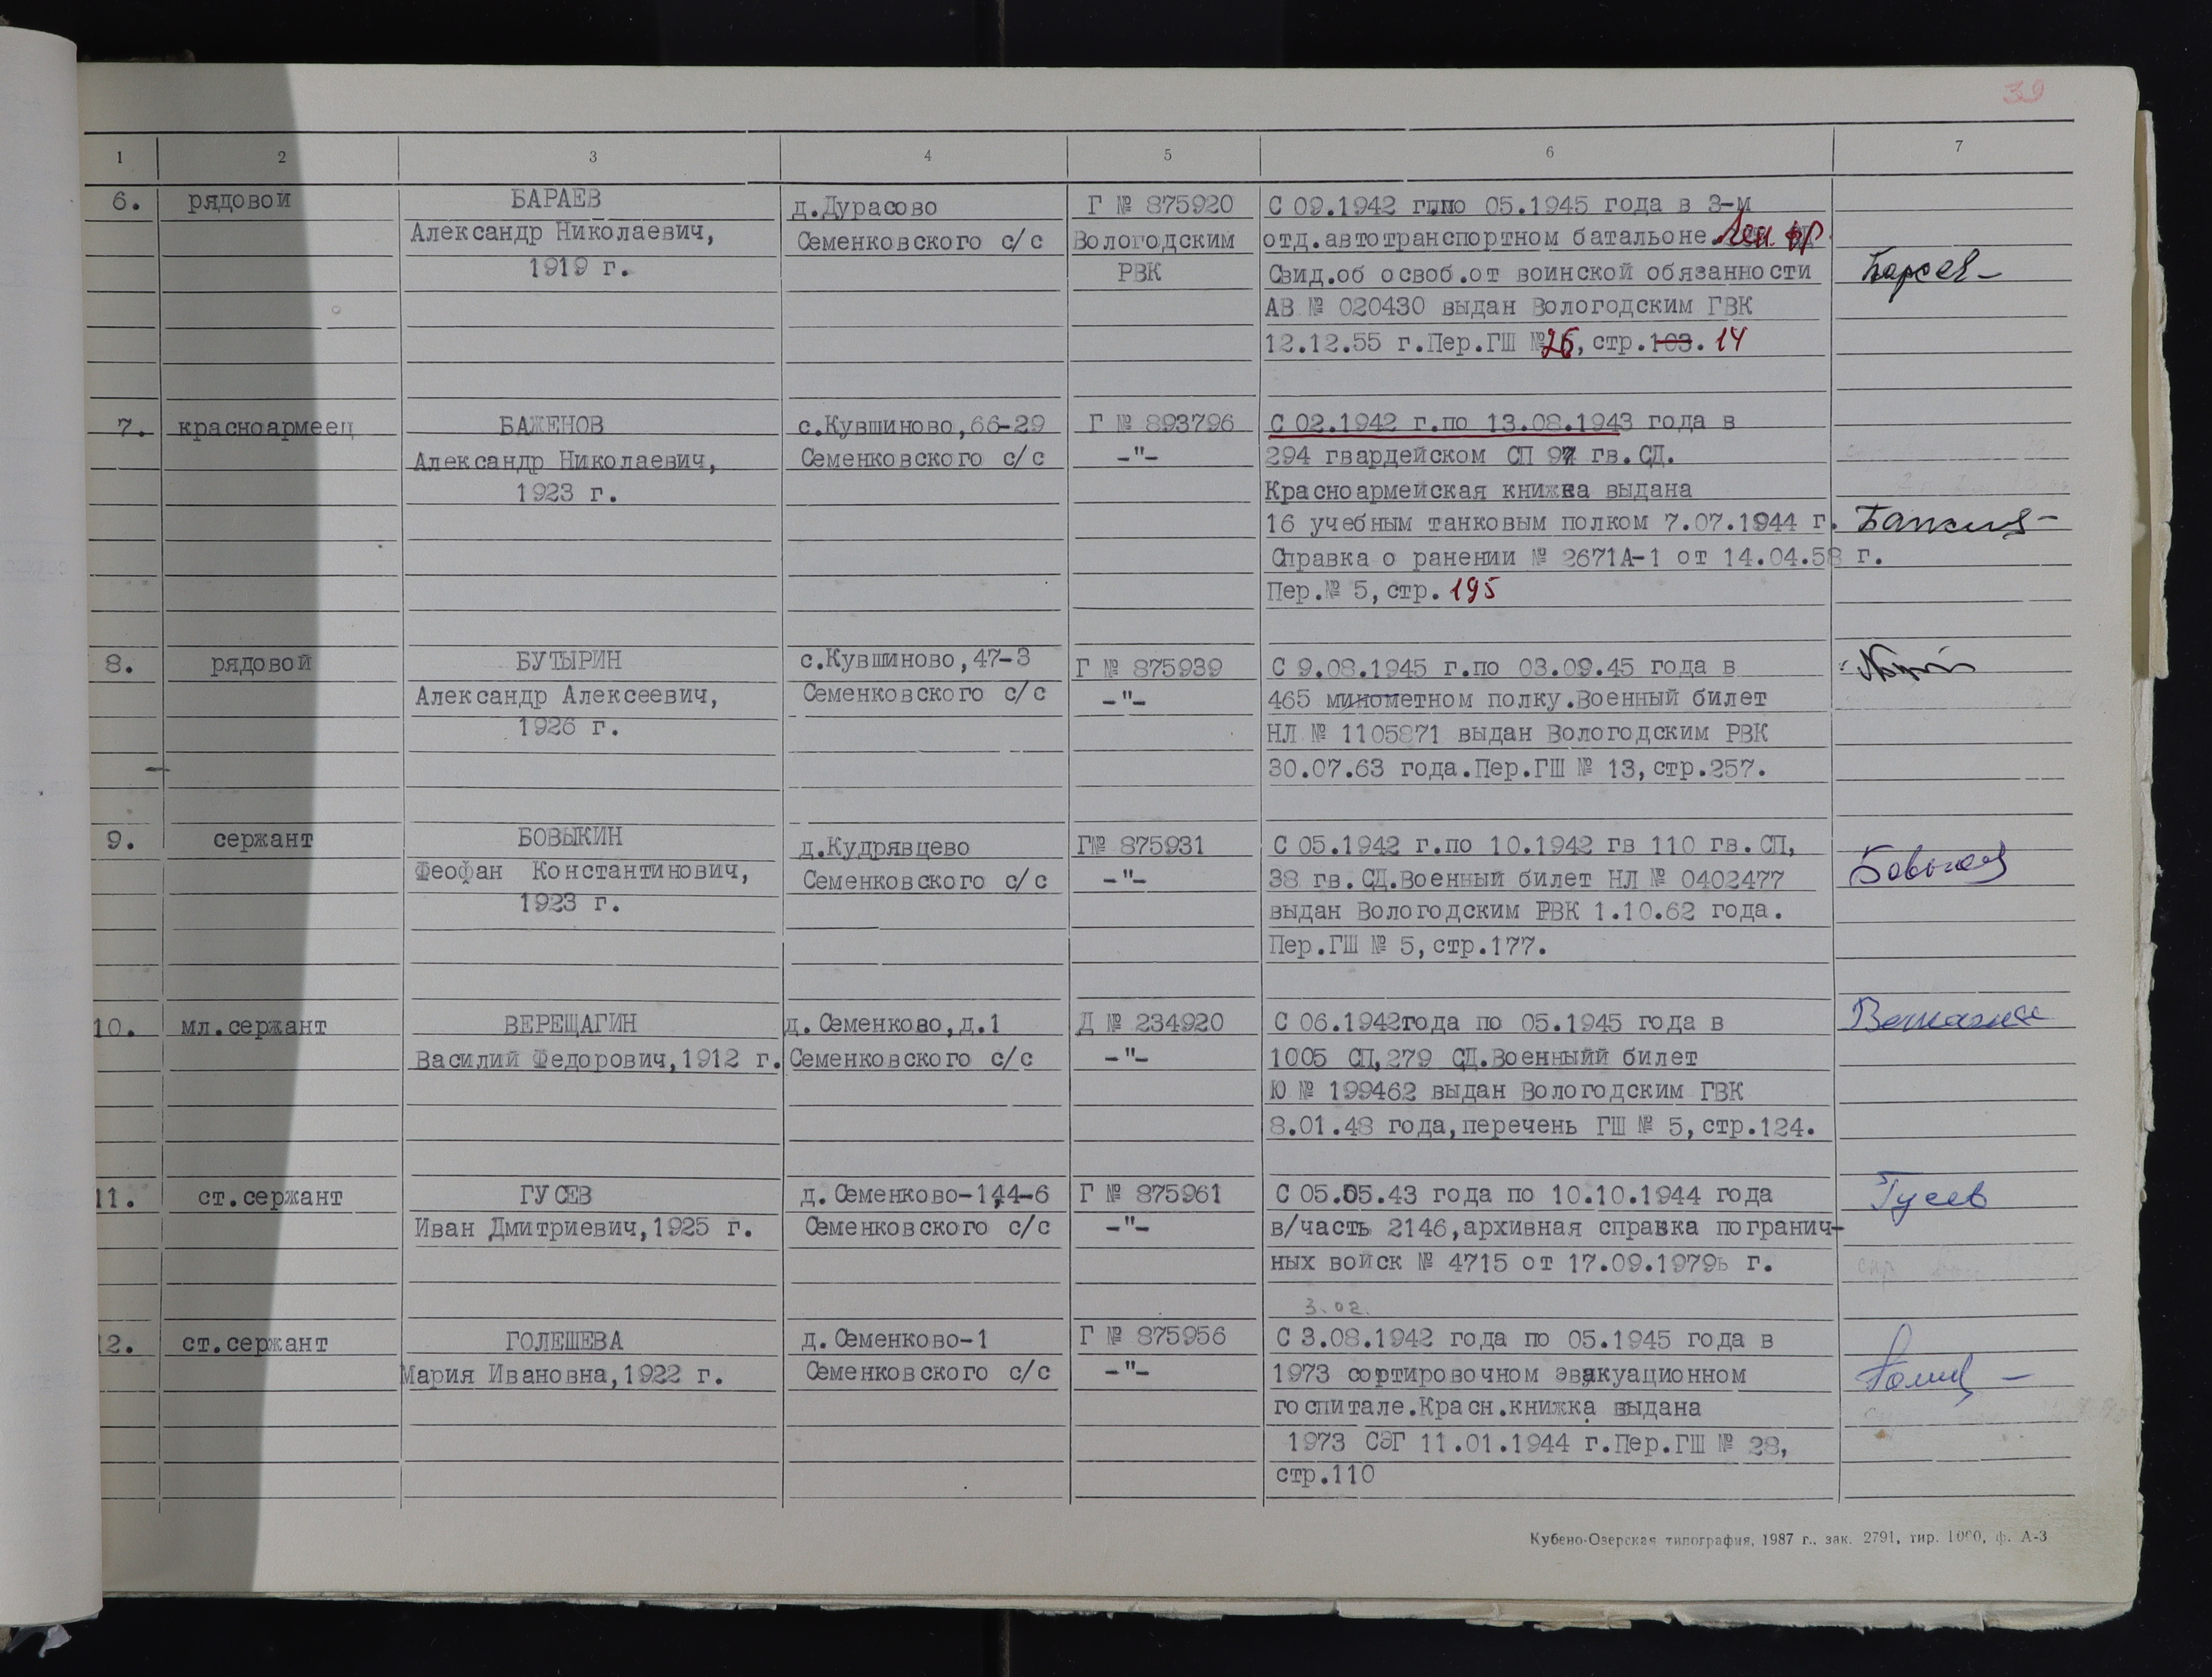 39
1 2 3 4 5 6 7
6. рядовой БАРАЕВ д.Дурасово Г № 875920 С 09.1942 г.по 05.1945 года в 3-м
Александр Николаевич, Семенковского с/с Вологодским отд.автотранспортном батальоне. Лен. фр.
1919 г. РВК Свид.об освоб.от воинской обязанности Бараев
АВ № 020430 выдан Вологодским ГВК
12.12.55 г.Пер.ГШ № 26, стр.103. 14
7. красноармеец БАЖЕНОВ с.Кувшиново,66-29 Г № 893796 С 02.1942 г.по 13.08.1943 года в
Александр Николаевич, Семенковского с/с -"- 294 гвардейском СП 97 гв.СД.
1923 г. Красноармейская книжка выдана
16 учебным танковым полком 7.07.1944 г.
Справка о ранении № 2671А-1 от 14.04.58 г.
Пер.№ 5,стр. 195
8. рядовой БУТЫРИН с.Кувшиново,47-3 Г № 875939 С 9.08.1945 г.по 03.09.45 года в
Александр Алексеевич, Семенковского с/с -"- 465 минометном полку.Военный билет
1926 г. НЛ № 1105871 выдан Вологодским РВК
30.07.63 года.Пер.ГШ № 13,стр.257.
9. сержант БОВЫКИН д.Кудрявцево Г№ 875931 С 05.1942 г.по 10.1942 гв 110 гв.СП,
Феофан Константинович, Семенковского с/с -"- 38 гв.СД.Военный билет НЛ № 0402477
1923 г. выдан Вологодским РВК 1.10.62 года.
Пер.ГШ № 5,стр.177.
10. мл.сержант ВЕРЕЩАГИН д.Семенково,д.1 Д № 234920 С 06.1942года по 05.1945 года в
Василий Федорович,1912 г. Семенковского с/с -"- 1005 СП,279 СД.Военныйй билет
Ю № 199462 выдан Вологодским ГВК
8.01.48 года,перечень ГШ № 5,стр.124.
11. ст.сержант ГУСЕВ д.Семенково-1,44-6 Г № 875961 С 05.05.43 года по 10.10.1944 года Гусев
Иван Дмитриевич,1925 г. Семенковского с/с -"- в/часть 2146,архивная справка погранич-
ных войск № 4715 от 17.09.1979 г.
3.02.
12. ст.сержант ГОЛЕШЕВА д.Семенково-1 Г № 875956 С 3.08.1942 года по 05.1945 года в
Мария Ивановна,1922 г. Семенковского с/с -"- 1973 сортировочном эвакуационном
госпитале.Красн.книжка выдана
1973 СЭГ 11.01.1944 г.Пер.ГШ № 28,
стр.110
Кубено-Озерская типография, 1987 г., зак. 2791, тир. 1000, ф. А-3